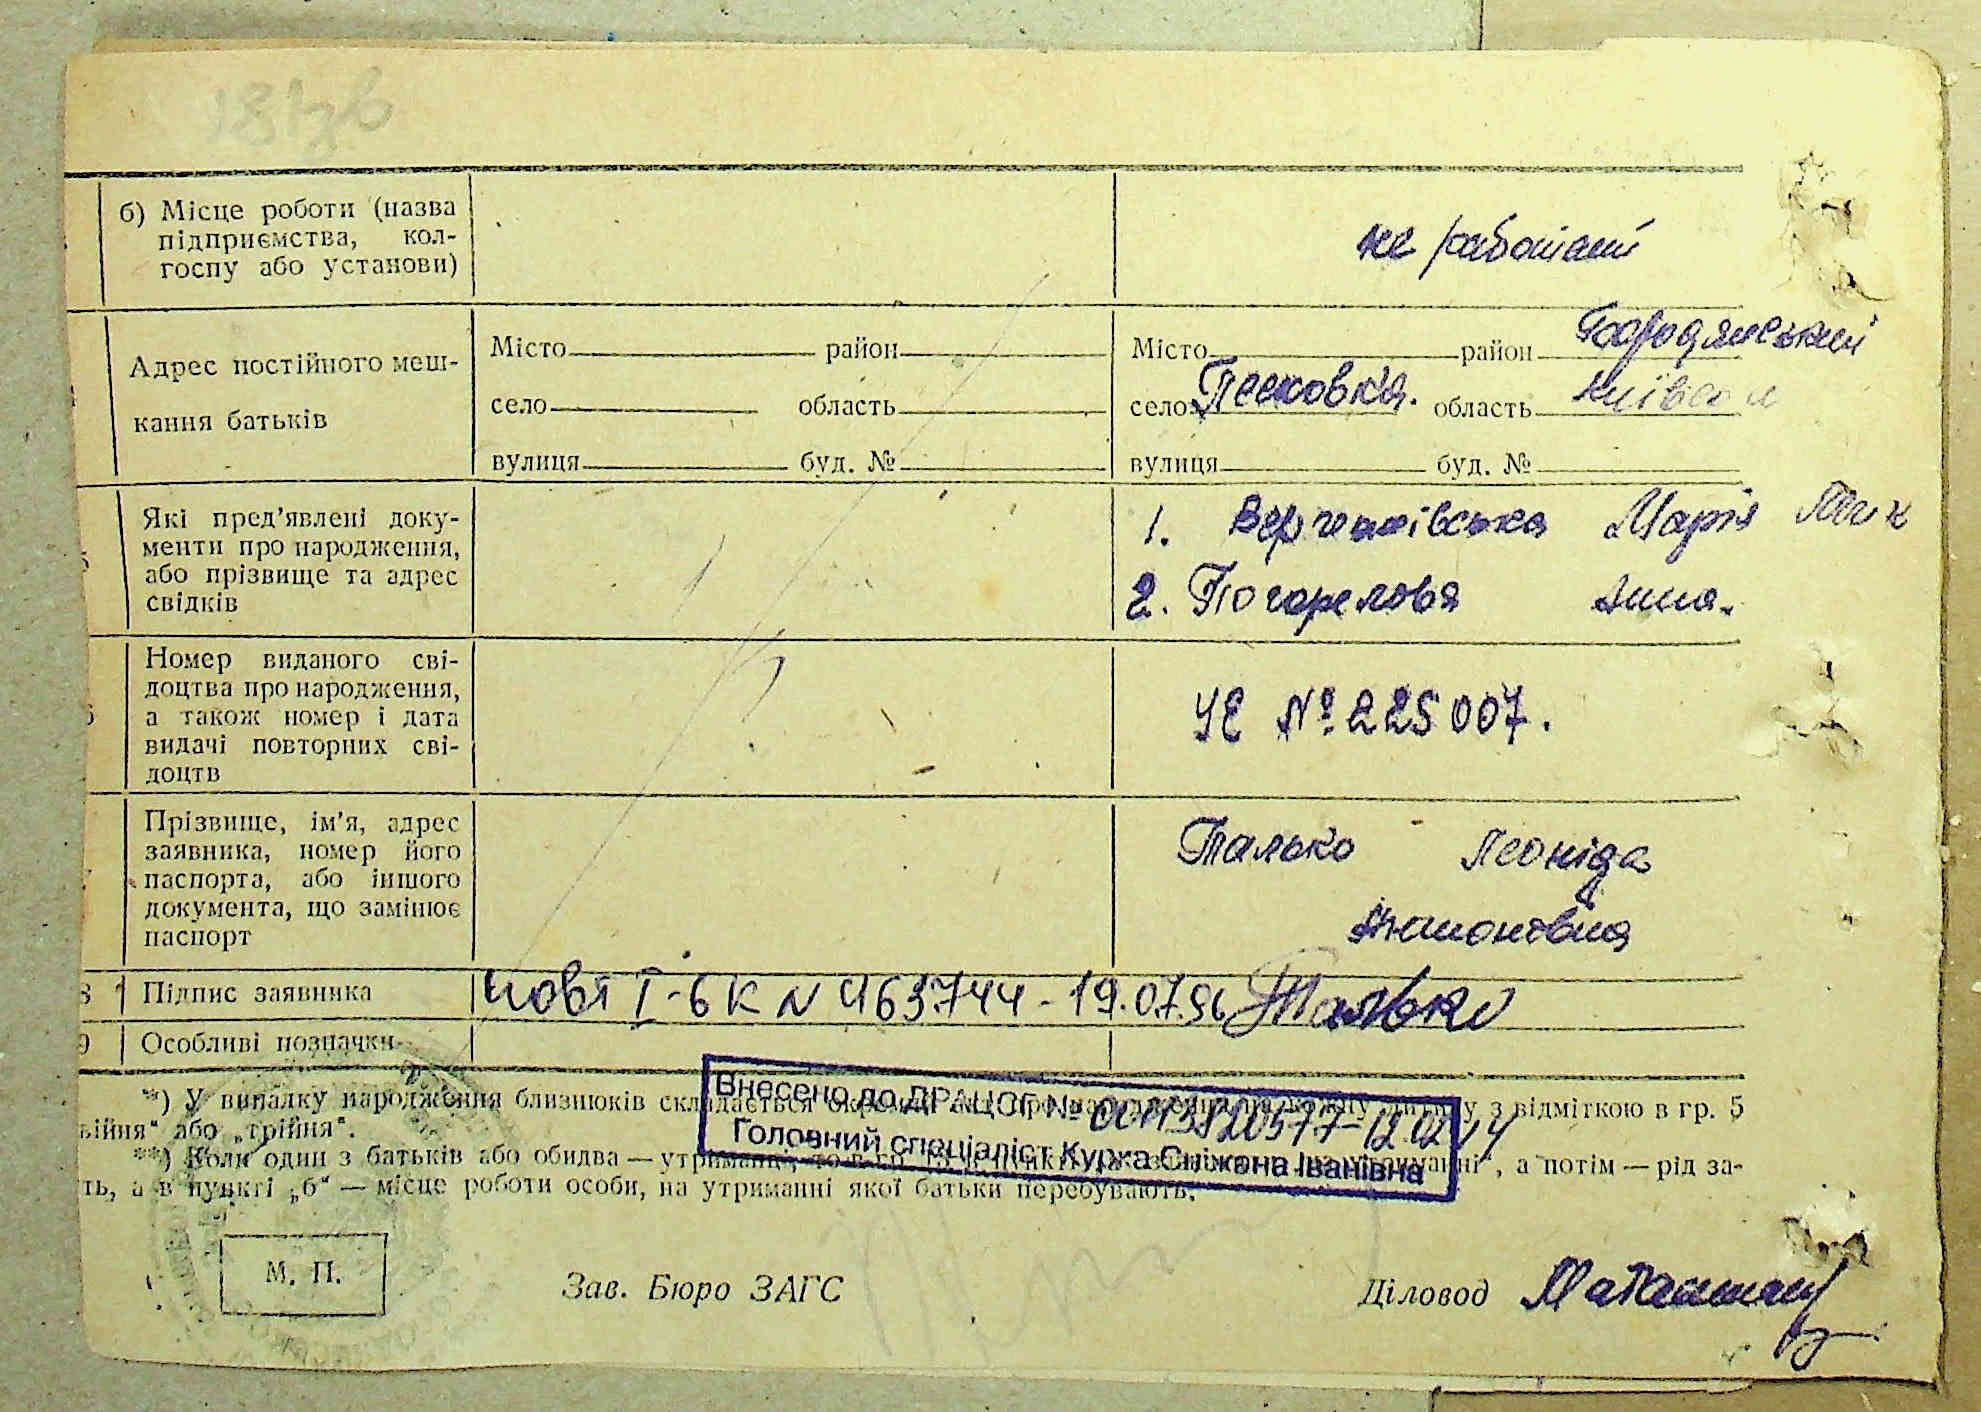 б) Місце роботи (назва
підприємства, кол-
госпу або установи)
не работает
Адрес постійного меш-
кання батьків
Місто район
село область
вулиця буд. №
Місто район Бородянський
село Песковка. область Київсь
вулиця буд. №
Які пред'явлені доку-
менти про народження,
або прізвище та адрес
свідків
1. Марія
2. Погорелова Анна.
Номер виданого сві-
доцтва про народження,
а також номер і дата
видачі повторних сві-
доцтв
УЕ № 225007.
Прізвище, ім'я, адрес
заявника, номер його
паспорта, або іншого
документа, що замінює
паспорт
Талько Леоніда
Антоновна
8 Підпис заявника
нов I-БК N 463744 - 19.07.96 Талько
9 Особливі позначки
*) У випадку народження близнюків складається на кожну з відміткою в гр. 5
"війня" або "трійня".
**) Коли один з батьків або обидва — утриманці, а потім — рід за-
ть, а в пункті "б" — місце роботи особи, на утриманні якої батьки перебувають.
Внесено до ДРАЦСГ № 12.02.14
Головний спеціаліст Курка Сніжана Іванівна
М. П.
Зав. Бюро ЗАГС
Діловод